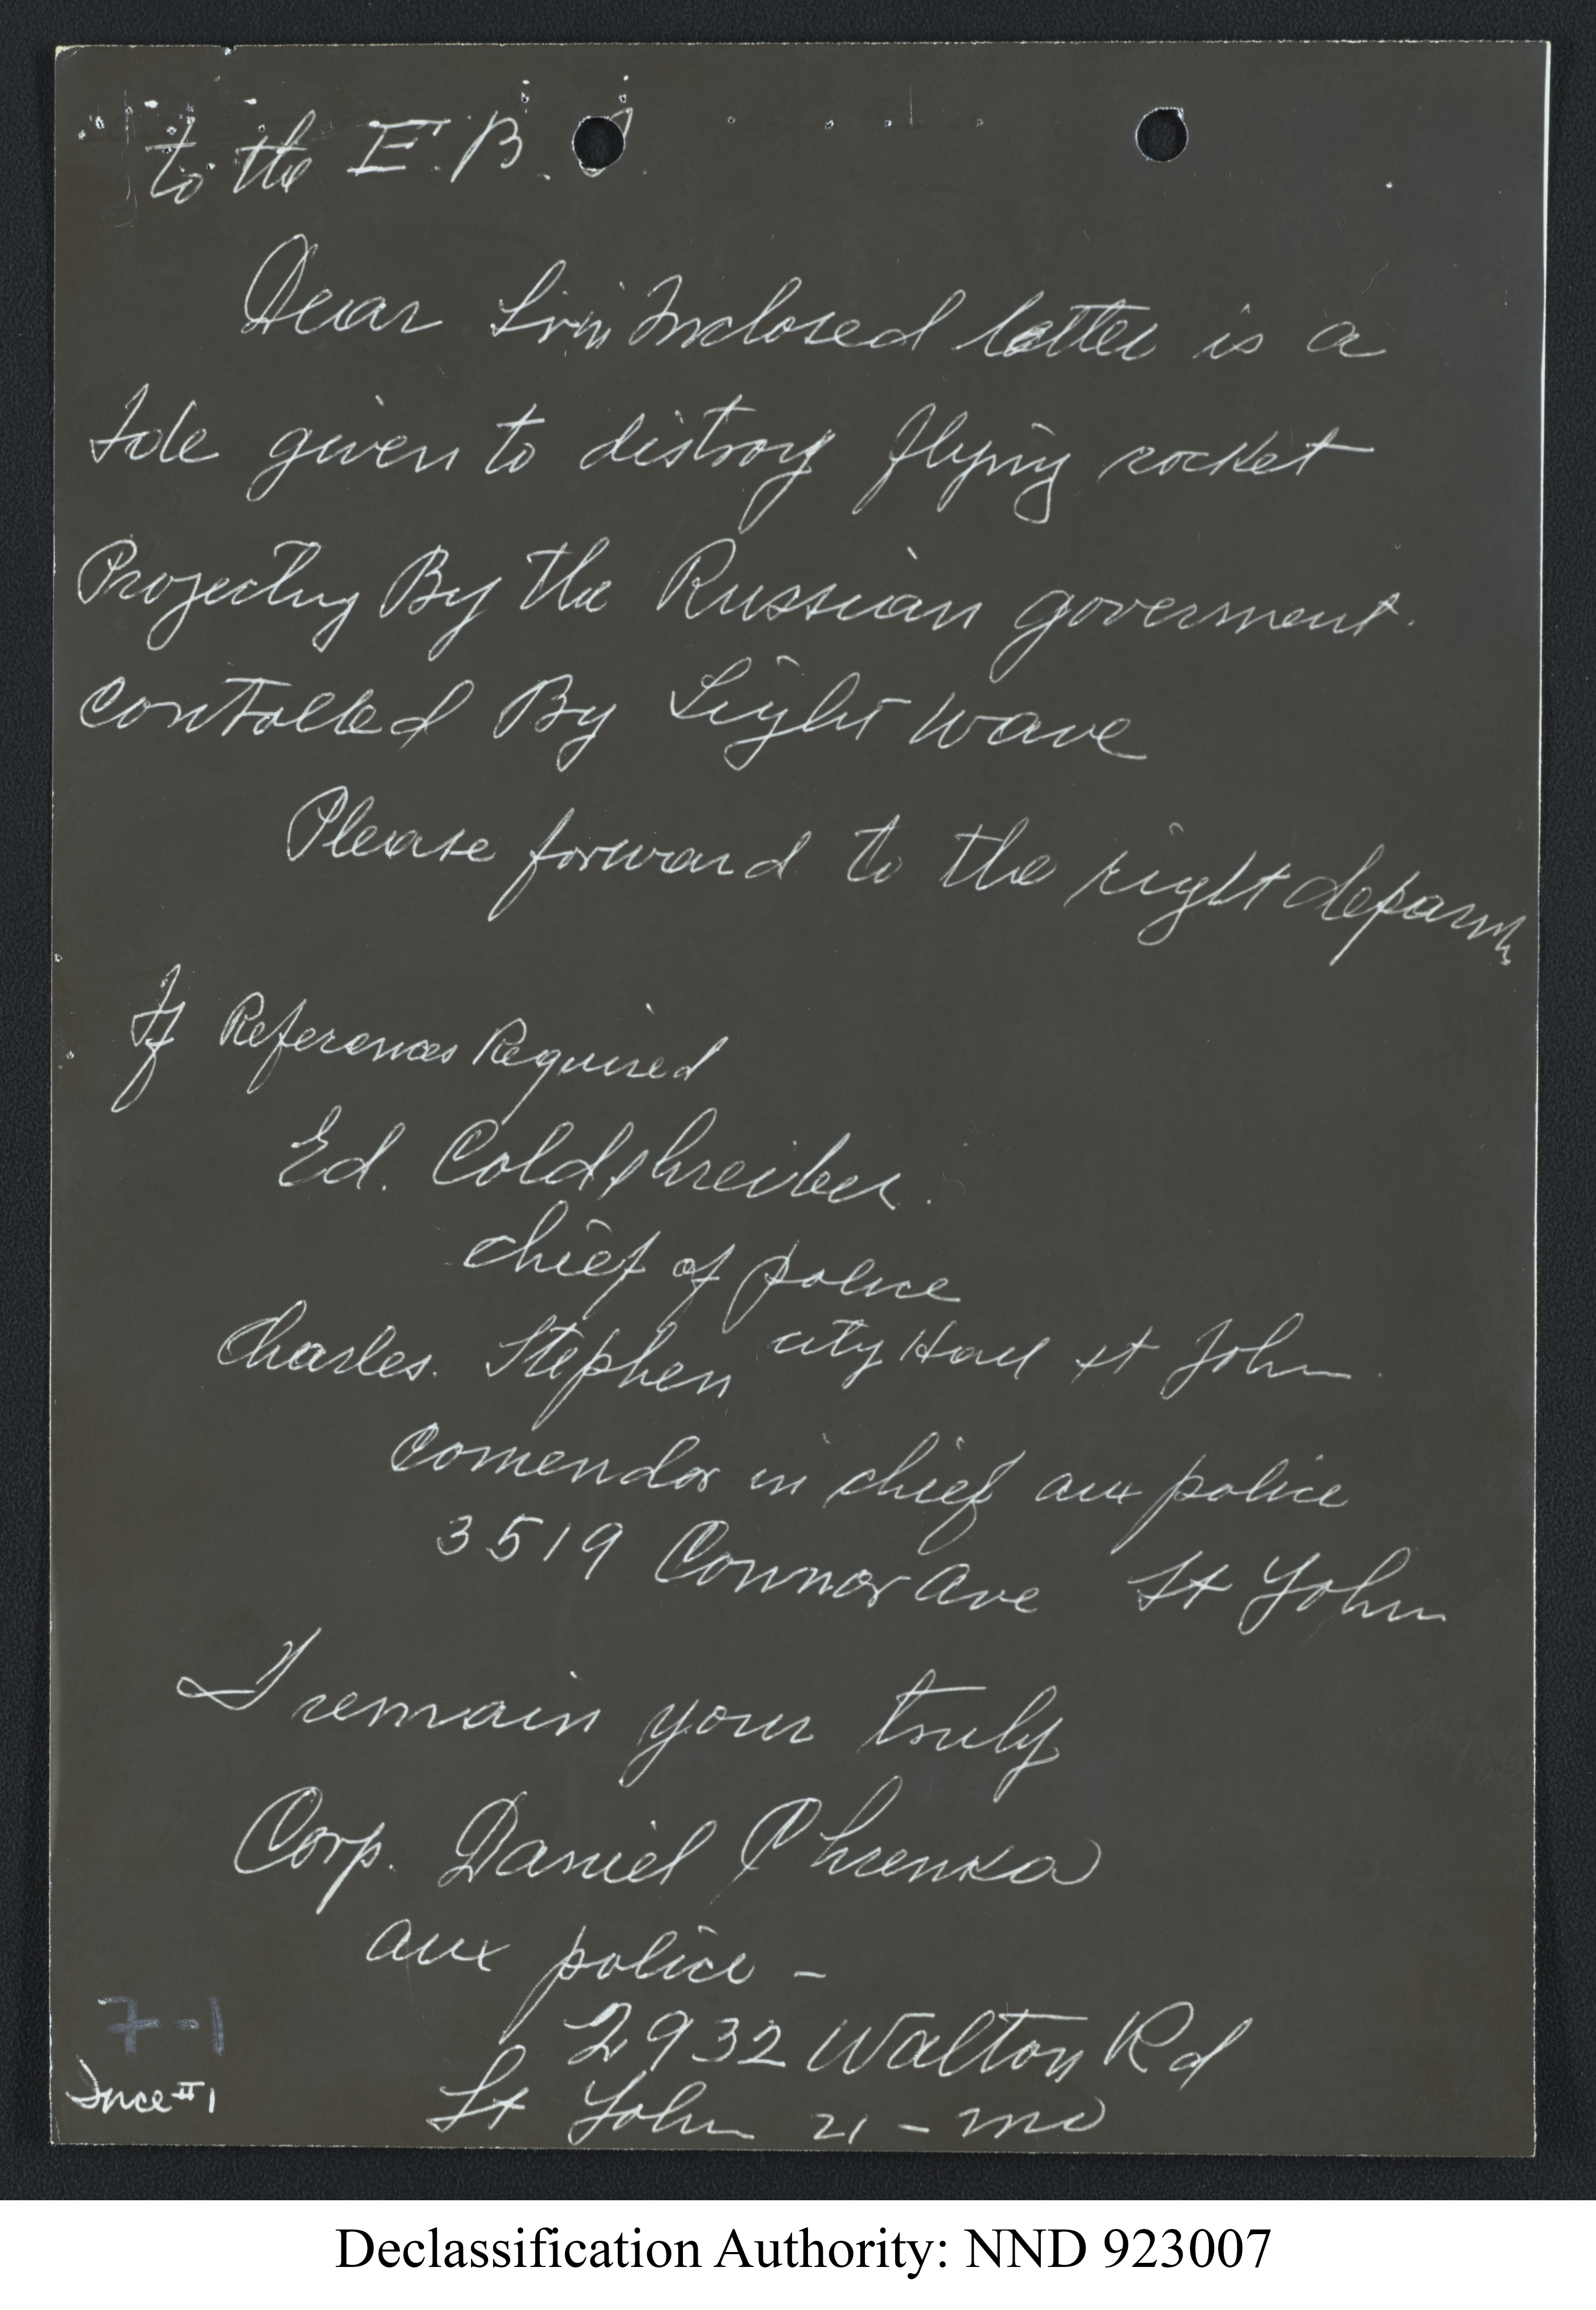 to the F. B.
Dear Sir Inclosed letter is a
Ide given to distroy flying rocket
Projecting By the Russian goverment.
controlled By Light wave
Please forward to the right
If References Required
Ed. Coldshreiber.
chief of police
city Hall st John
Charles. Stephen
comendor in chief aux police
3519 Connor ave St John
I remain your truly
Corp. Daniel Chrenka
aux police -
2932 Walton Rd
St John 21 - mo
7-1
#1
Declassification Authority: NND 923007